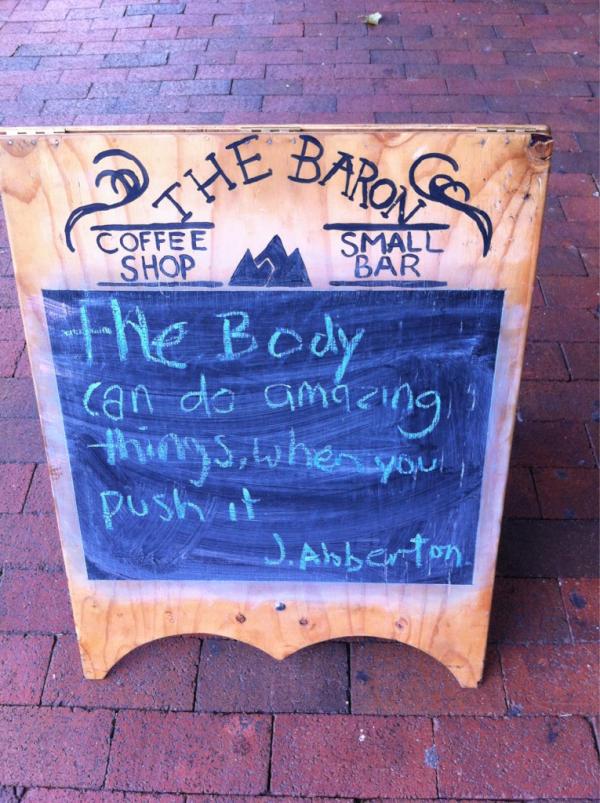 THE BARON
COFFEE SHOP
SMALL BAR
the Body
can do amazing
things, when you
push it
J. Abberton